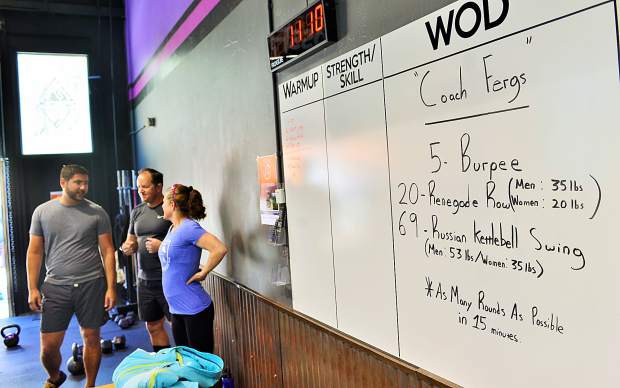 11:10
WARMUP
STRENGTH/
SKILL
WOD
"Coach Fergs"
5- Burpee
20- Renegade Row (Men: 35 lbs
Women: 20 lbs)
69- Russian Kettlebell Swing
(Men: 53 lbs/Women: 35 lbs)
*As Many Rounds As Possible
in 15 minutes.